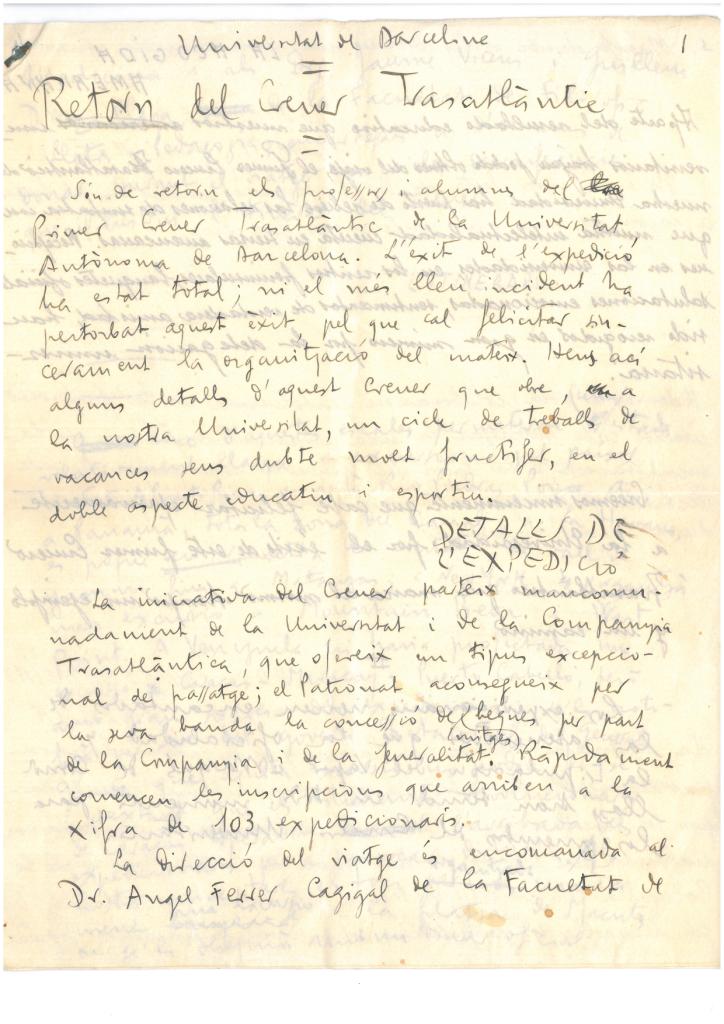 Universitat de Barcelona
1
Retorn del Creuer Trasatlàntic
Són de retorn els professors i alumnes del
Primer Creuer Trasatlàntic de la Universitat
Autònoma de Barcelona. L'èxit de l'expedició
ha estat total; ni el més lleu incident ha
pertorbat aquest èxit, pel que cal felicitar sin-
cerament la organització del mateix. Heus ací
alguns detalls d'aquest Creuer que obre, a
la nostra Universitat, un cicle de treballs de
vacances sens dubte molt fructifer, en el
doble aspecte educatiu i esportiu.
DETALLS DE
L'EXPEDICIÓ
La iniciativa del Creuer parteix mancomu-
nadament de la Universitat i de la Companyia
Trasatlàntica, que ofereix un tipus excepcio-
nal de passatge; el Patronat aconsegueix per
la seva banda la concessió de (mitges) beques per part
de la Companyia i de la Generalitat. Ràpidament
comencen les inscripcions que arriben a la
xifra de 103 expedicionaris.
La direcció del viatge és encomanada al
Dr. Angel Ferrer Cagigal de la Facultat de